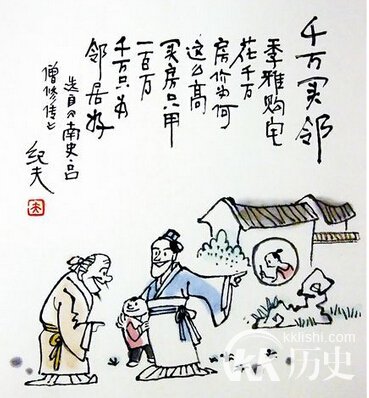 千万买邻
季雅购宅
花千万
房价为何
这么高
买房只用
一百万
千万只为
邻居好
选自《南史·吕
僧珍传》
纪夫
kklishi.com
KK历史